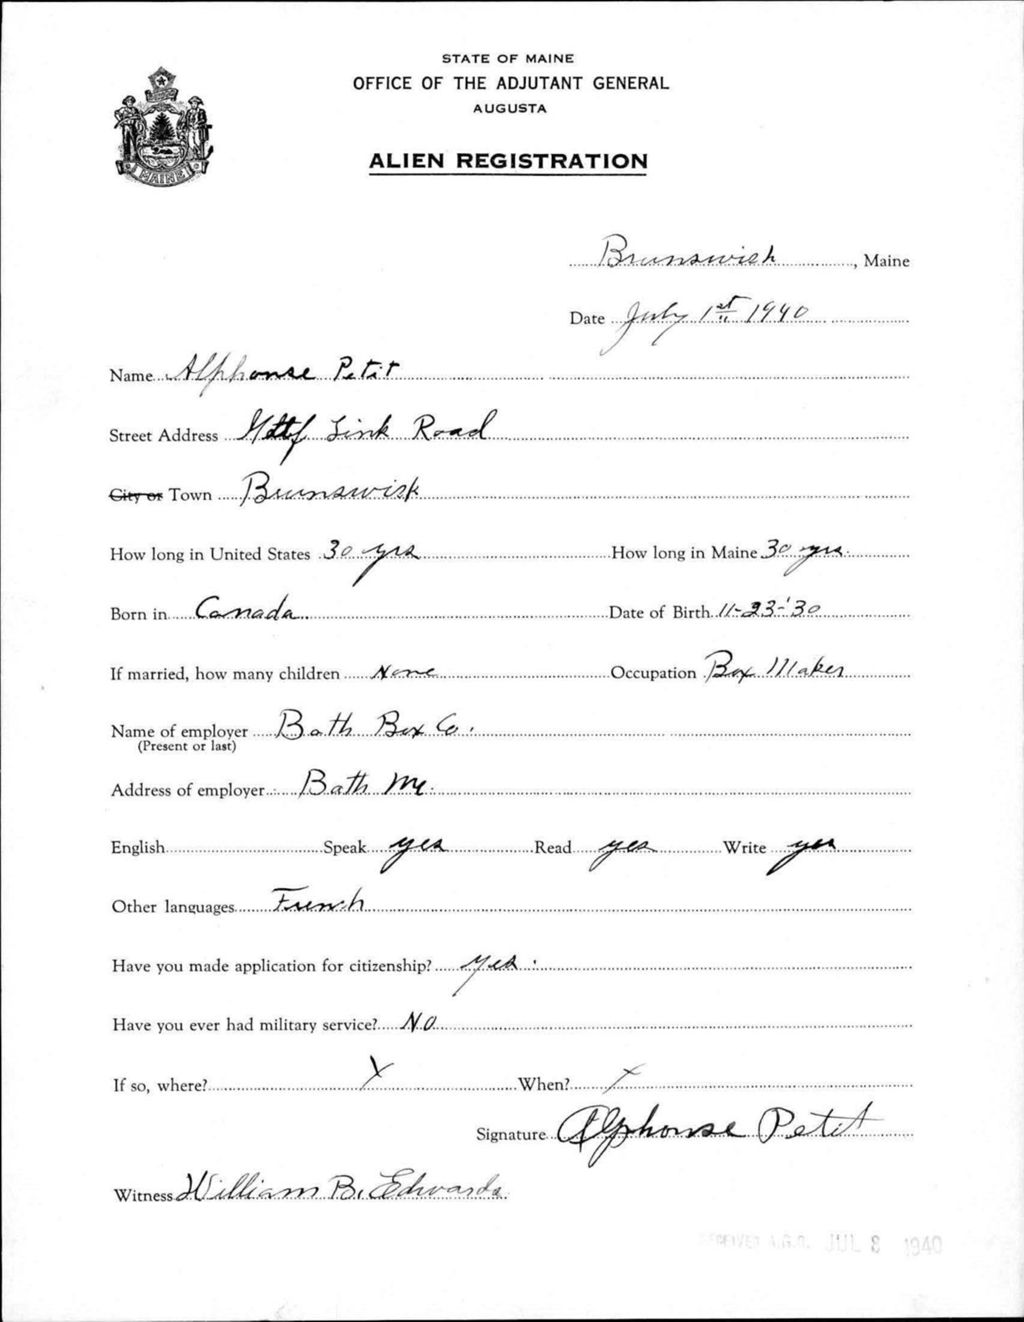 STATE OF MAINE
OFFICE OF THE ADJUTANT GENERAL
AUGUSTA
ALIEN REGISTRATION
MAINE
Brunswick, Maine
Date July 1st 1940
Name Alphonse Petit
Street Address Link Road
City or Town Brunswick
How long in United States 30 yrs How long in Maine 30 yrs.
Born in Canada Date of Birth 11-23-'30
If married, how many children None Occupation Box Maker
Name of employer Bath Box Co.
(Present or last)
Address of employer Bath Me.
English Speak yes Read yes Write yes
Other languages French
Have you made application for citizenship? yes.
Have you ever had military service? NO
If so, where? X When? X
Signature Alphonse Petit
Witness William B. Edwards
RECEIVED A.G.O. JUL 3 1940